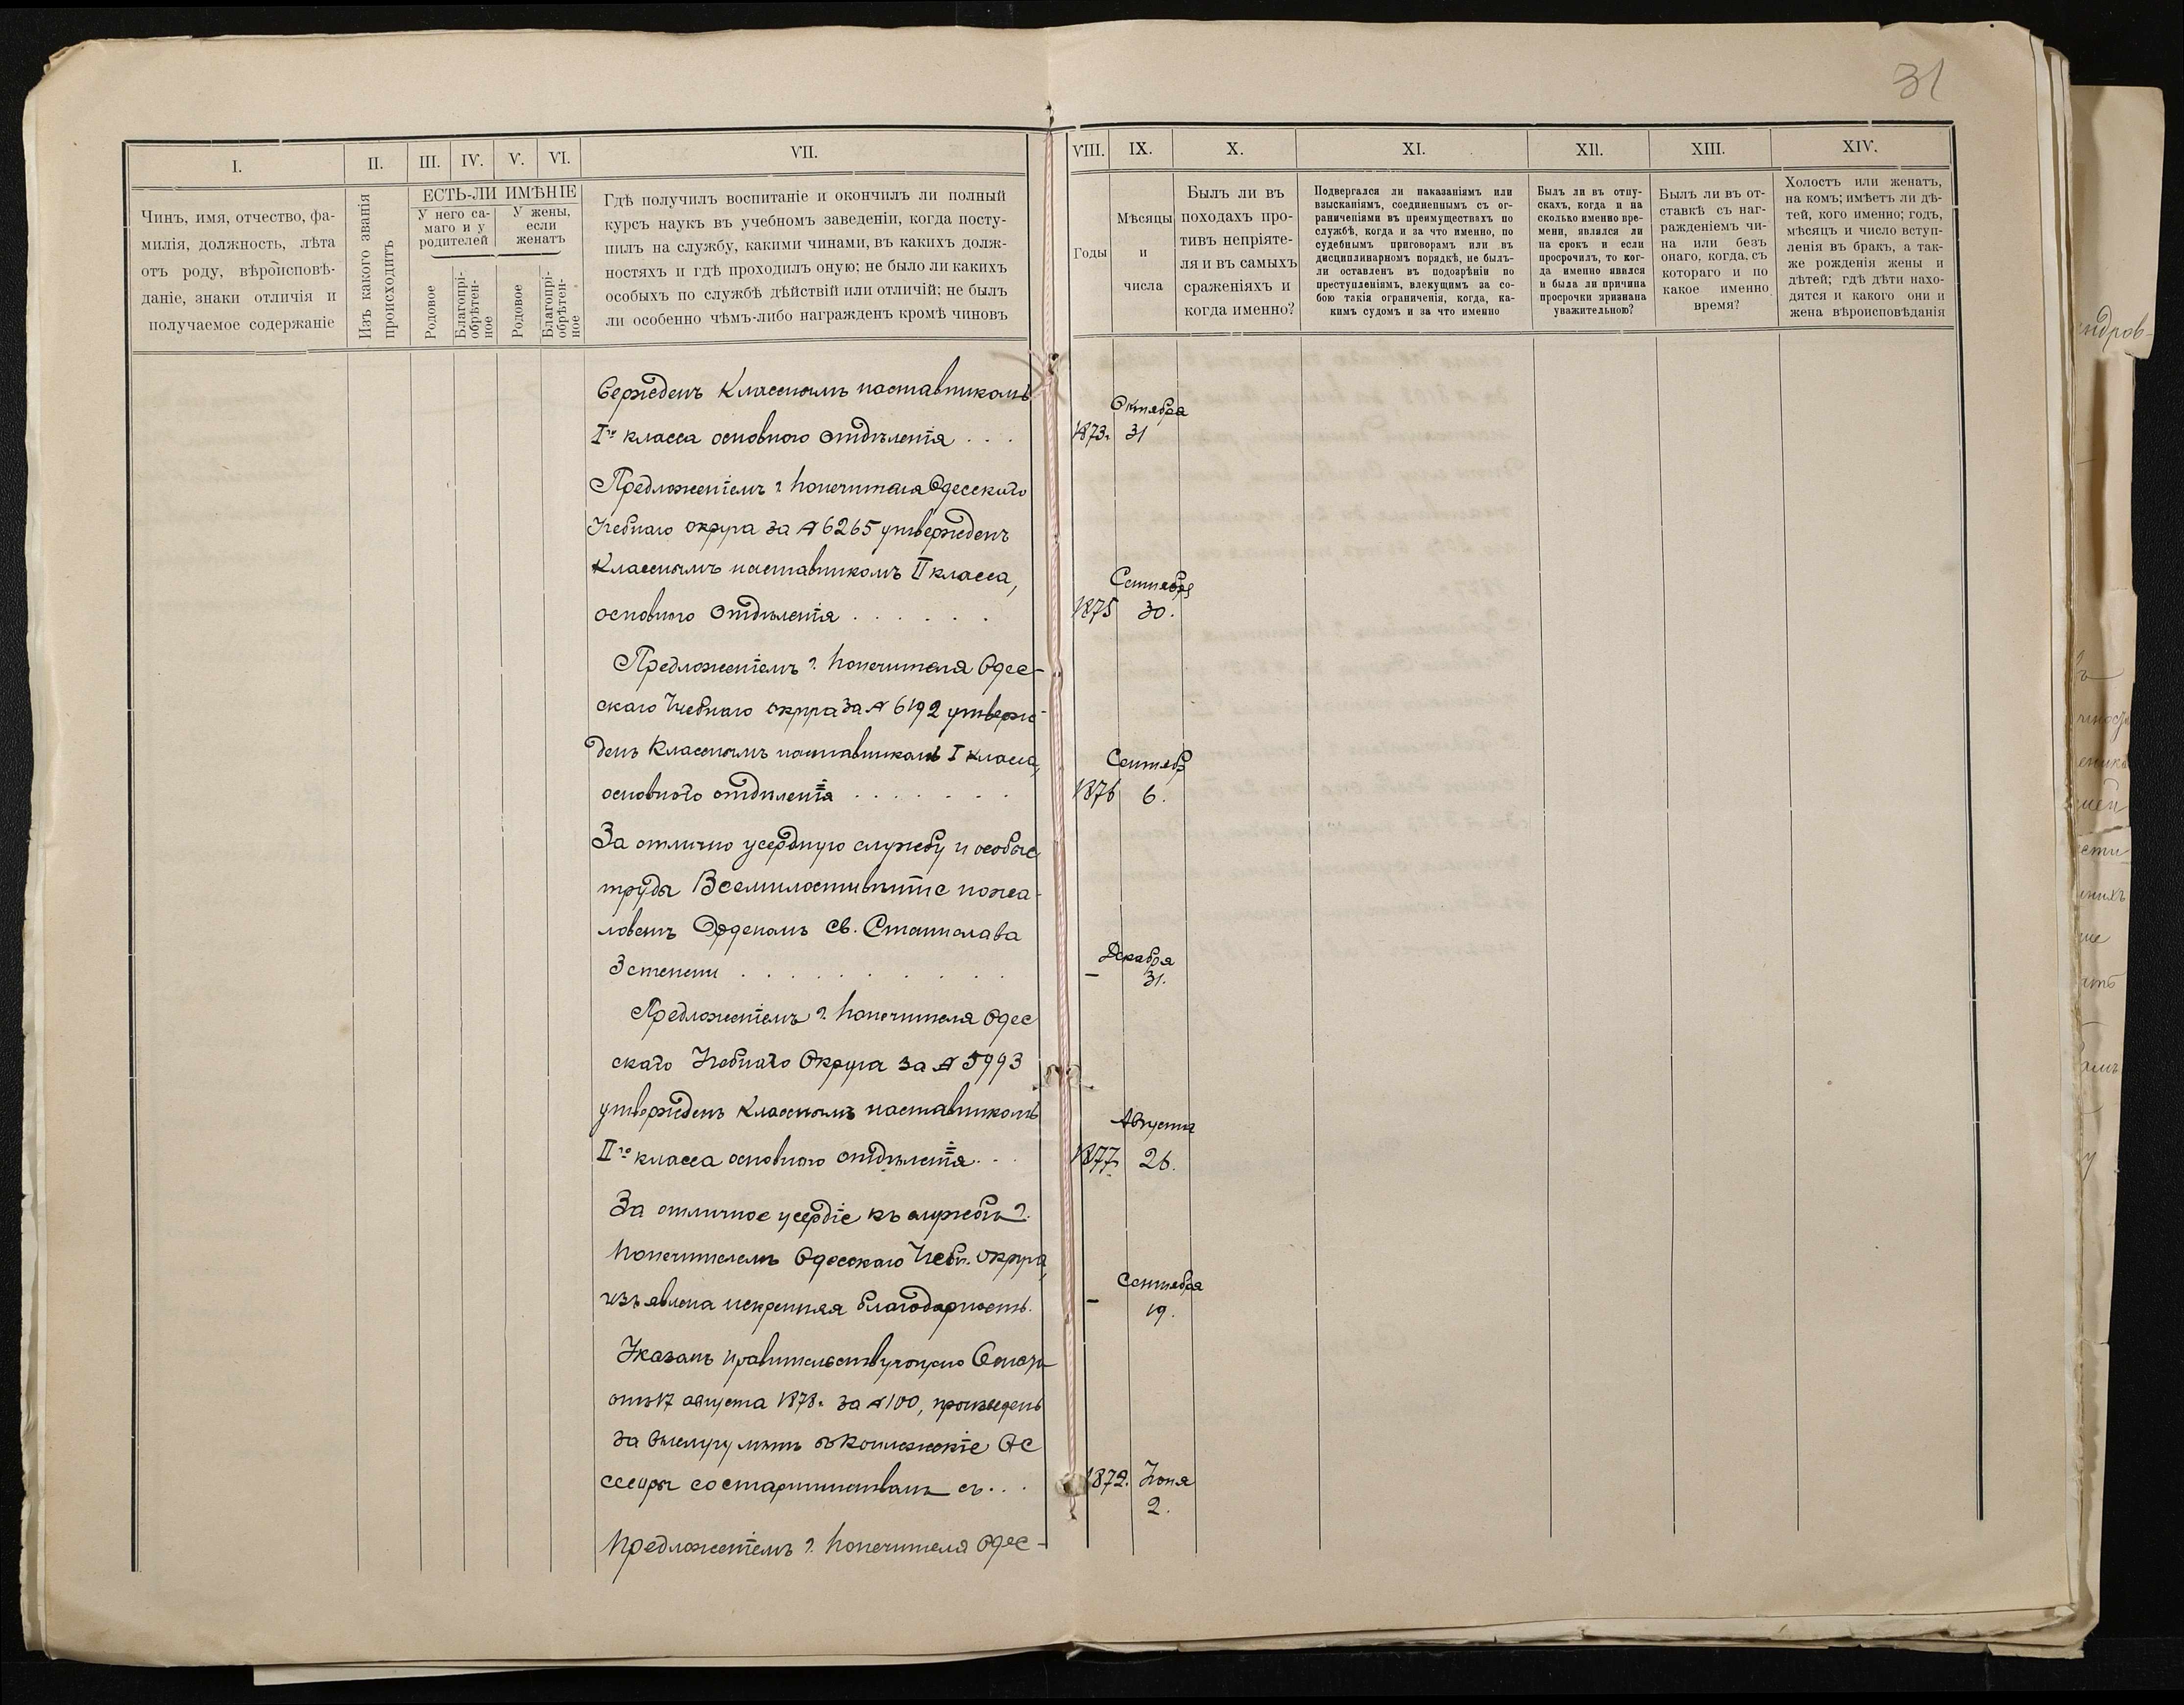 31
I. II. III. IV. V. VI. VII. VIII. IX. X. XI. XII. XIII. XIV.
Чинъ, имя, отчество, фа-
милія, должность, лѣта
отъ роду, вѣроисповѣ-
даніе, знаки отличія и
получаемое содержаніе
Изъ какого званія
происходитъ
ЕСТЬ-ЛИ ИМѢНІЕ
У него са-
маго и у
родителей
У жены,
если
женатъ
Родовое
Благопрі-
обрѣтен-
ное
Родовое
Благопрі-
обрѣтен-
ное
Гдѣ получилъ воспитаніе и окончилъ ли полный
курсъ наукъ въ учебномъ заведеніи, когда посту-
пилъ на службу, какими чинами, въ какихъ долж-
ностяхъ и гдѣ проходилъ оную; не было ли какихъ
особыхъ по службѣ дѣйствій или отличій; не былъ
ли особенно чѣмъ-либо награжденъ кромѣ чиновъ
Годы
Мѣсяцы
и
числа
Былъ ли въ
походахъ про-
тивъ непріяте-
ля и въ самыхъ
сраженіяхъ и
когда именно?
Подвергался ли наказаніямъ или
взысканіямъ, соединеннымъ съ ог-
раниченіями въ преимуществахъ по
службѣ, когда и за что именно, по
судебнымъ приговорамъ или въ
дисциплинарномъ порядкѣ, не былъ-
ли оставленъ въ подозрѣніи по
преступленіямъ, влекущимъ за со-
бою такія ограниченія, когда, ка-
кимъ судомъ и за что именно
Былъ ли въ отпу-
скахъ, когда и на
сколько именно вре-
мени, являлся ли
на срокъ и если
просрочилъ, то ког-
да именно явился
и была ли причина
просрочки признана
уважительною?
Былъ ли въ от-
ставкѣ съ наг-
ражденіемъ чи-
на или безъ
онаго, когда, съ
котораго и по
какое именно
время?
Холостъ или женатъ,
на комъ; имѣетъ ли дѣ-
тей, кого именно; годъ,
мѣсяцъ и число вступ-
ленія въ бракъ, а так-
же рожденія жены и
дѣтей; гдѣ дѣти нахо-
дятся и какого они и
жена вѣроисповѣданія
вержденъ Класснымъ наставникомъ
Iго класса основного отдѣленія . . . 1873г. Октября 31
Предложеніемъ г. Попечителя Одесскаго
Учебнаго округа за № 6265 утвержденъ
Класснымъ наставникомъ II класса,
основного отдѣленія . . . . . . 1875 Сентября 30.
Предложеніемъ г. Попечителя Одес-
скаго Учебнаго округа за № 6192 утверж-
денъ Класснымъ наставникомъ I класса,
основного отдѣленія . . . . . . 1876 Сентябр 6.
За отлично усердную службу и особые
труды Всемилостивѣйше пожа-
лованъ Орденомъ Св. Станислава
3 степени . . . . . . . – Декабря 31.
Предложеніемъ г. Попечителя Одес
скаго Учебнаго Округа за № 5993
утвержденъ Класснымъ наставникомъ
IIго класса основного отдѣленія . . 1877г. Августа 26.
За отличное усердіе къ службѣ г.
Попечителемъ Одесскаго Учебн. округа,
изъявлена искренняя благодарность. – Сентября 19.
Указомъ Правительствующаго Сената
отъ 17 августа 1878г. за № 100, произведенъ
за выслугу лѣтъ въ Коллежскіе Ас
сесоры со старшинствомъ съ . . . 1872. Іюня 2.
Предложеніемъ г. Попечителя Одес-